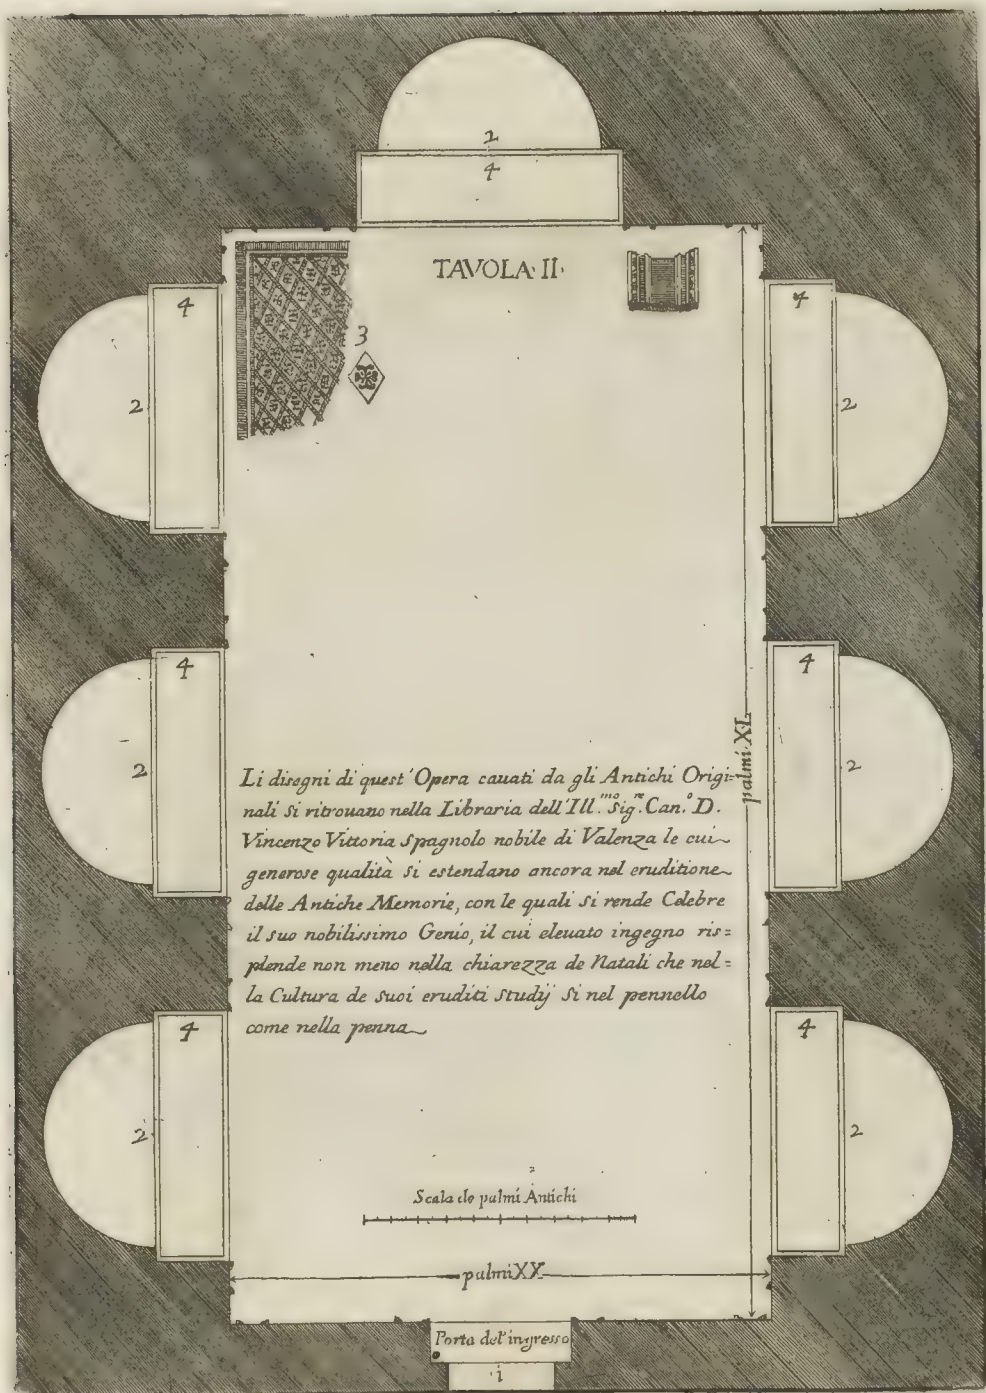 2
4
TAVOLA·II·
4
4
3
2
2
4
4
palmi·XL
2
2
Li disegni di quest' Opera cauati da gli Antichi Origi=
nali si ritrouano nella Libraria dell' Ill.mo Sig.re Can.o D.
Vincenzo Vittoria Spagnolo nobile di Valenza le cui
generose qualità si estendano ancora nel eruditione
delle Antiche Memorie, con le quali si rende Celebre
il suo nobilissimo Genio, il cui eleuato ingegno ris=
plende non meno nella chiarezza de Natali che nel=
la Cultura de suoi eruditi studij si nel pennello
come nella penna
4
4
2
2
Scala de palmi Antichi
palmi XX
Porta del'ingresso
i